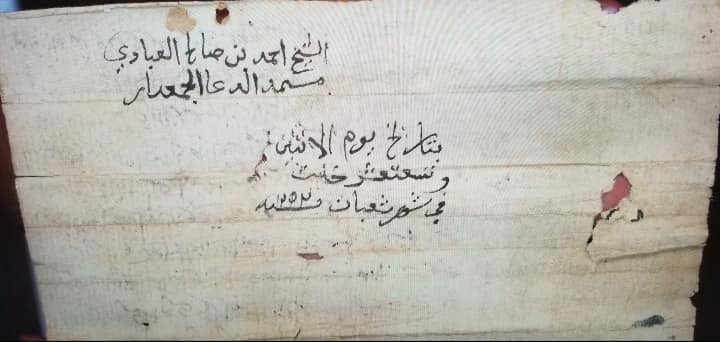 الشيخ احمد بن صالح العبادي
مستمد الدعا الجمعدار
بتاريخ يوم الاثنين
وتسعتعشر خلت
في شهر شعبان سنة ١٢٥٣